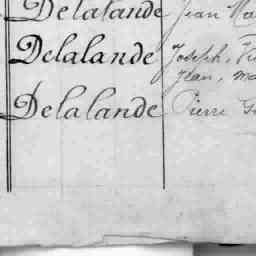 Delalande Jean
Delalande Joseph,
Jean,
Delalande Pierre